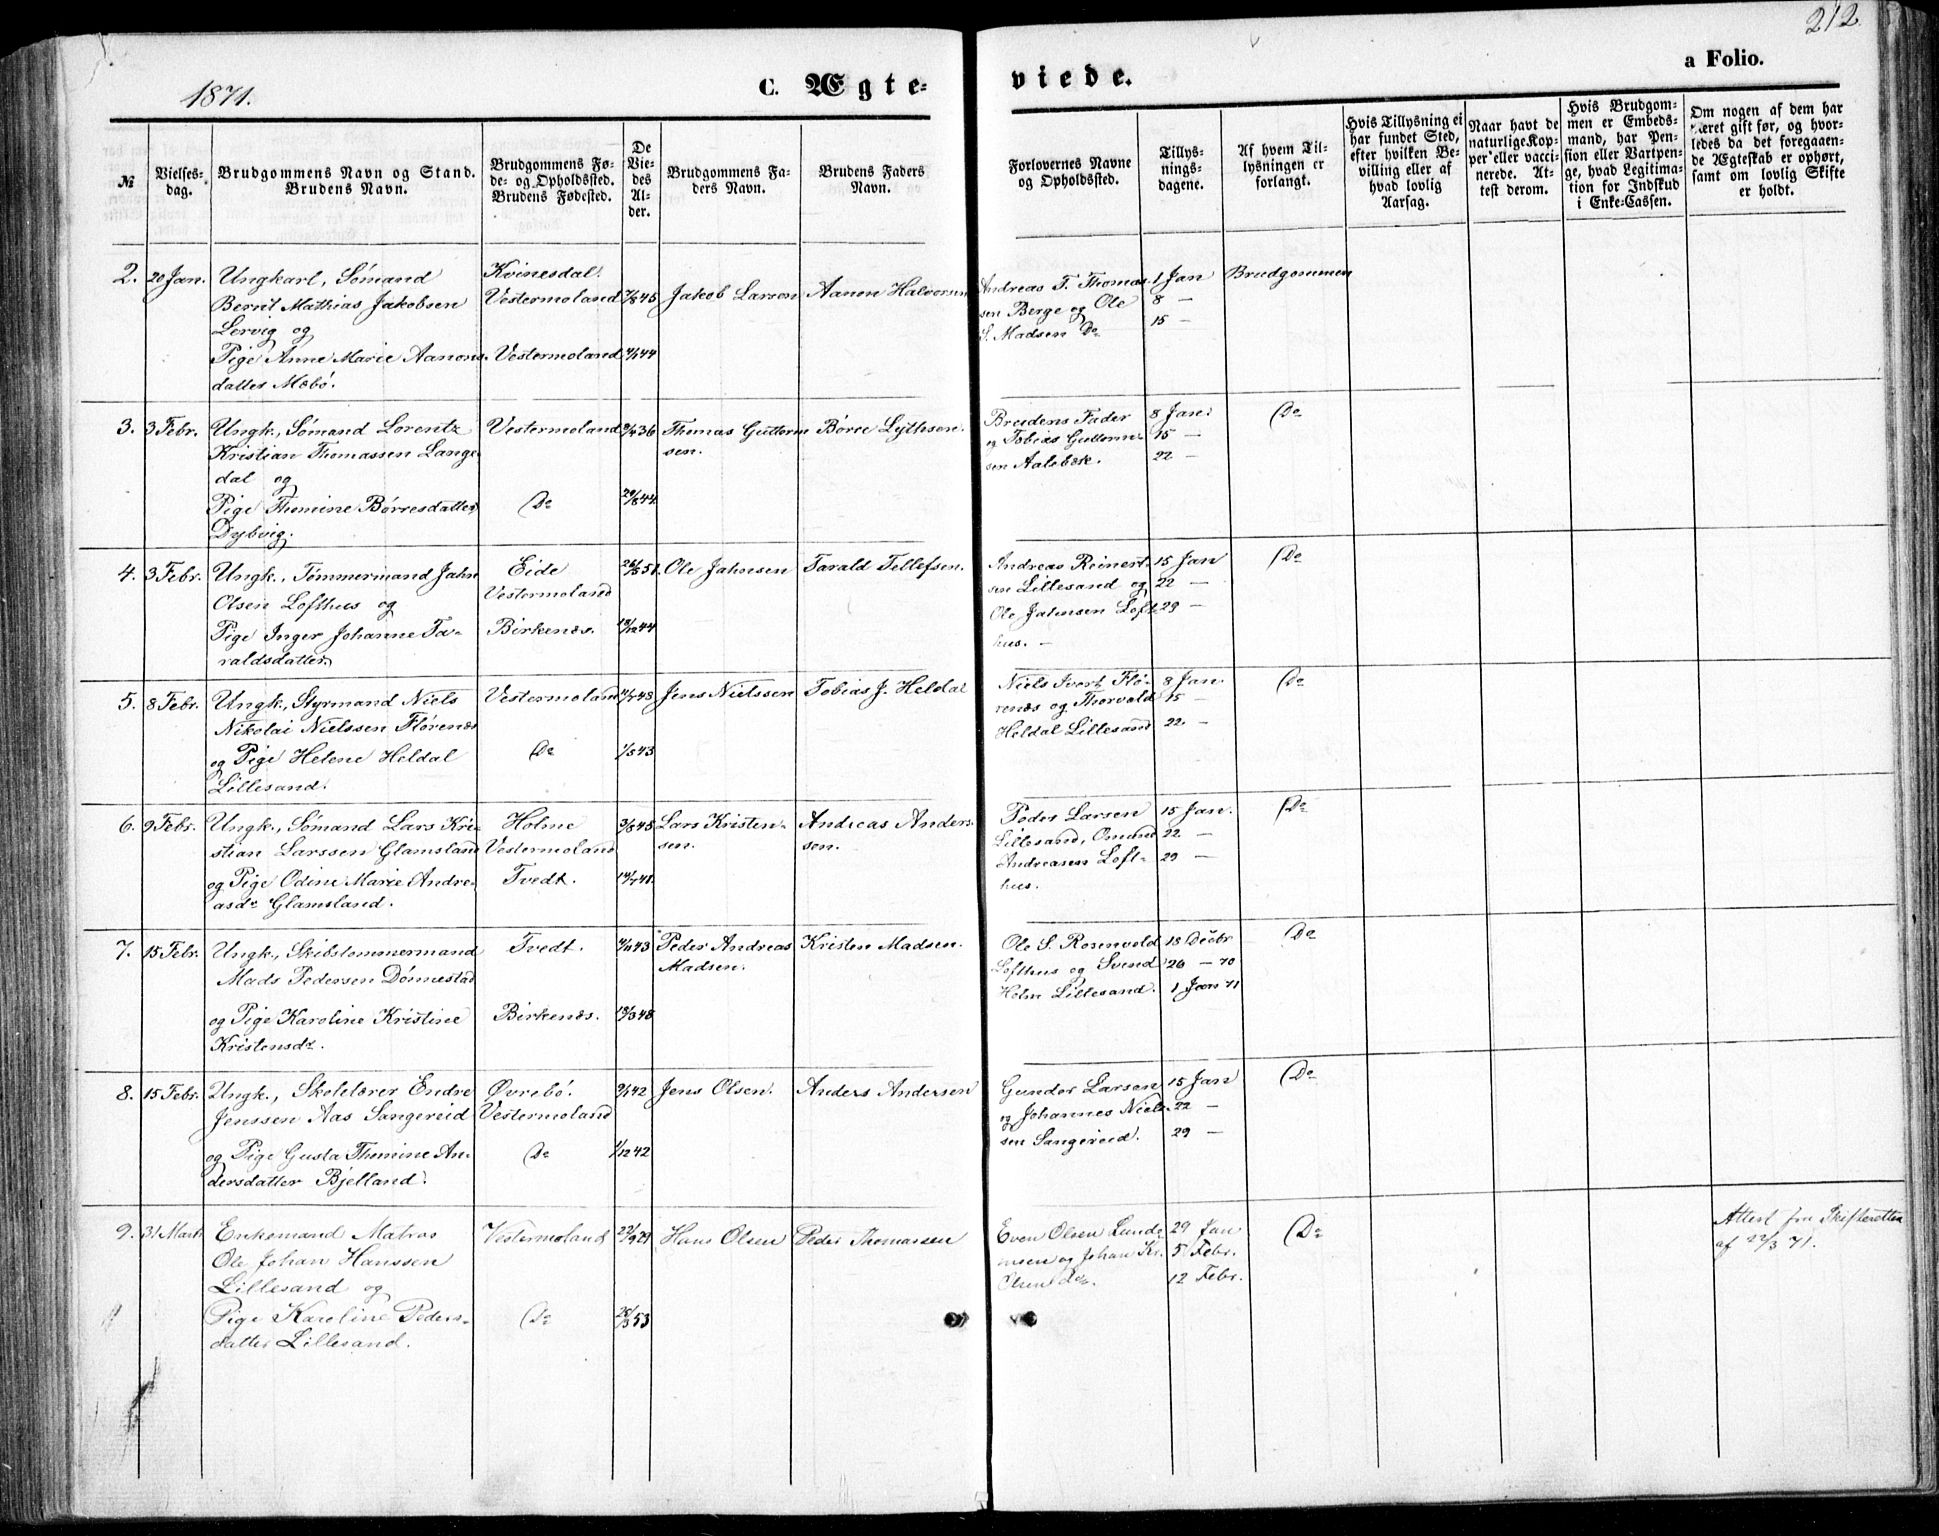 212.
1871.
C. Ægte-
viede.
a Folio.
№
Vielses-
dag.
Brudgommens Navn og Stand.
Brudens Navn.
Brudgommens Fø-
de- og Opholdssted.
Brudens Fødested.
De
Vie-
des
Al-
der.
Brudgommens Fa-
ders Navn.
Brudens Faders
Navn.
Forlovernes Navne
og Opholdssted.
Tillys-
nings-
dagene.
Af hvem Til-
lysningen er
forlangt.
Hvis Tillysning ei
har fundet Sted,
efter hvilken Be-
villing eller af
hvad lovlig
Aarsag.
Naar havt de
naturlige Kop-
per eller vacci-
nerede. At-
test derom.
Hvis Brudgom-
men er Embeds-
mand, har Pen-
sion eller Vartpen-
ge, hvad Legitima-
tion for Indskud
i Enke-Cassen.
Om nogen af dem har
været gift før, og hvor-
ledes da det foregaaen-
de Ægteskab er ophørt,
samt om lovlig Skifte
er holdt.
2. 20 Jan.
Ungkarl, Sömand
Bernt Mathias Jakobsen
Lervig og
Pige Anne Marie Aanons-
datter Mæbö.
Kvinesdal.
Vestermoland
Vestermoland
7/8 45
4/1 44
Jakob Larsen
Aanon Halvorsen
Andreas T. Thomas-
sen Berge og Ole
S. Madsen Do
1 Jan
8 —
15 —
Brudgommen
3. 3 Febr.
Ungk., Sömand Lorentz
Kristian Thomassen Lange-
dal og
Pige Thomine Börresdatter
Dybvig.
Vestermoland
Do
9/4 36
29/8 44
Thomas Guttorm
sen.
Börre Lythsen.
Brudens Fader
og Tobias Guttorm-
sen Aalebæk.
8 Jan.
15 —
22 —
Do
4. 3 Febr.
Ungk., Tömmermand Jahn
Olsen Lofthus og
Pige Inger Johanne Ta-
raldsdatter
Eide
Vestermoland
Birkenæs.
26/5 51
18/12 44
Ole Jahnsen
Tarald Tellefsen.
Andreas Reinert-
sen Lillesand og
Ole Jahnsen Loft
hus. —
15 Jan
22 —
29 —
Do
5. 8 Febr.
Ungk., Styrmand Niels
Nikolai Nielssen Flörenæs
og Pige Helene Heldal
Lillesand.
Vestermoland
Do
4/7 48
1/5 43
Jens Nielssen
Tobias J. Heldal
Niels Ivert Flö-
renæs og Thorvald
Heldal Lillesand
8 Jan.
15 —
22 —
Do
6. 9 Febr.
Ungk., Sömand Lars Kri-
stian Larssen Glamsland
og Pige Odine Marie Andre-
asdr Glamsland.
Holme
Vestermoland
Tvedt.
3/8 45
14/7 48.
Lars Kristen-
sen.
Andreas Anders-
sen.
Peder Larsen
Lillesand, Omund
Andreasen Loft-
hus.
15 Jan.
22 —
29 —
Do
7. 15 Febr.
Ungk., Skibstömmermand
Mads Pedersen Dönnestad
og Pige Karoline Kristine
Kristensdr.
Tvedt.
Birkenæs.
4/11 43
18/3 48
Peder Andreas
Madsen.
Kristen Madsen.
Ole S. Rosenvold
Lofthus og Svend
Holm Lillesand.
18 Decbr
26 — 70
1 Jan 71
Do
8. 15 Febr.
Ungk., Skolelærer Endre
Jenssen Aas Sangereid
og Pige Gusta Thomine An-
dersdatter Bjelland.
Øvrebö.
Vestermoland
Do
9/1 42
1/12 42
Jens Olsen.
Anders Andersen
Gunder Larsen
og Johannes Niels-
sen Sangereid.
15 Jan
22 —
29 —
Do
9. 31 Mart.
Enkemand Matros
Ole Johan Hanssen
Lillesand og
Pige Karoline Peders-
datter Lillesand.
Vestermoland
Do
22/9 29
25/3 53
Hans Olsen
Peder Thomassen
Even Olsen
og Johan Kr.
Olsen Do.
29 Jan
5 Febr.
12 Febr.
Do
Attest fra Skifteretten
af 22/3 71.